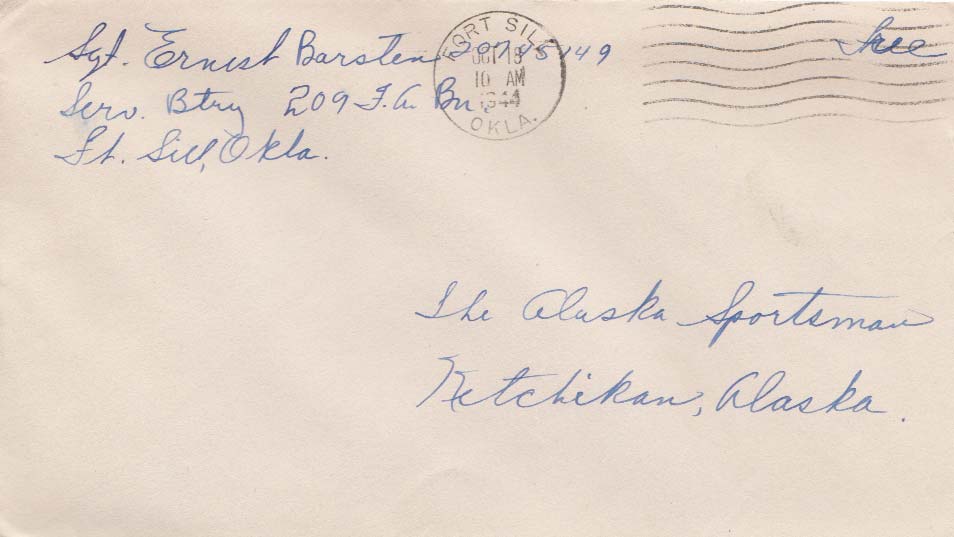 Sgt. Ernest Barsten
Serv. Btry 209 F.A. Bn.
Ft. Sill, Okla.
FORT SILL
OCT 18
10 AM
1944
OKLA.
Free
The Alaska Sportsman
Ketchikan, Alaska.